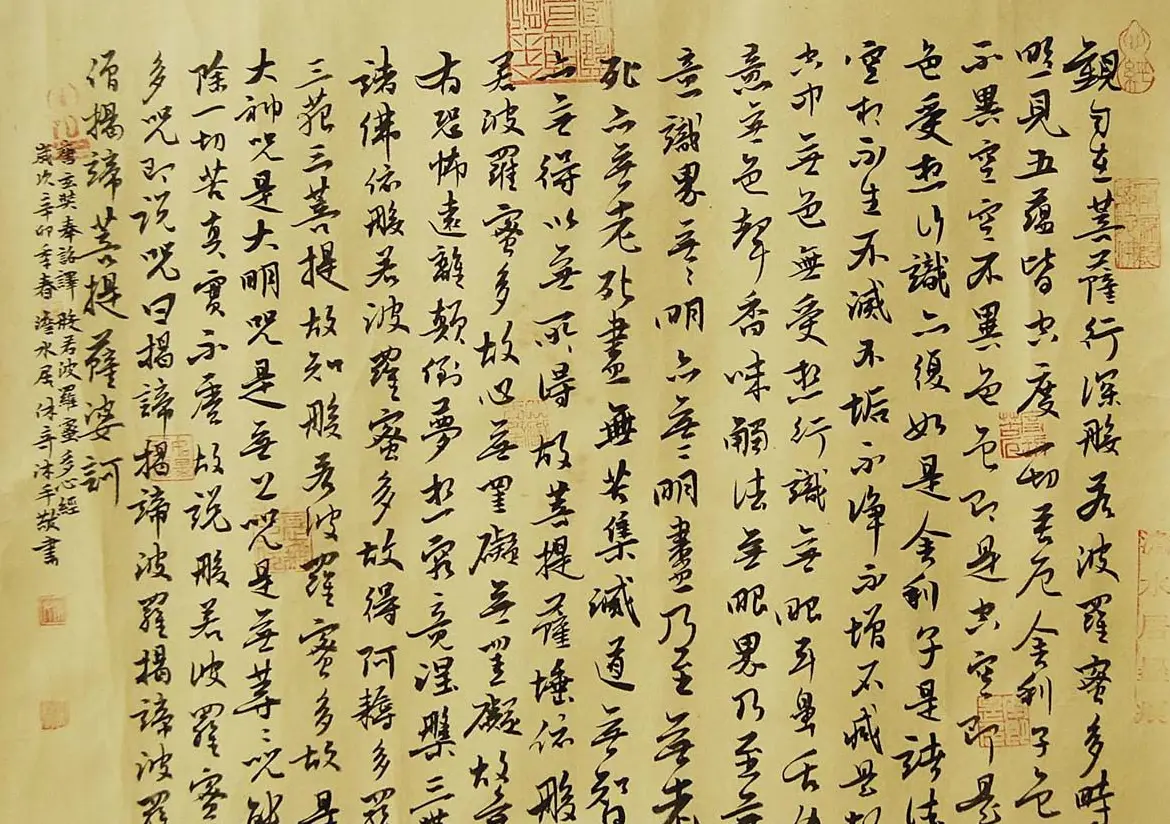 觀自在菩薩行深般若波羅蜜多時
照見五蘊皆空度一切苦厄舍利子色
不異空空不異色色即是空空即是
色受想行識亦復如是舍利子是諸法
空相不生不滅不垢不淨不增不減是故
空中無色無受想行識無眼耳鼻舌
意無色聲香味觸法無眼界乃至無
意識界無〻明亦無〻明盡乃至無老
死亦無老死盡無苦集滅道無智
亦無得以無所得故菩提薩埵依般
若波羅蜜多故心無罣礙無罣礙故無
有恐怖遠離顛倒夢想究竟涅槃三世
諸佛依般若波羅蜜多故得阿耨多羅
三藐三菩提故知般若波羅蜜多故是
大神呪是大明呪是無上呪是無等〻呪能
除一切苦真實不虛故說般若波羅蜜
多呪即說呪曰揭諦揭諦波羅揭諦波羅
僧揭諦菩提薩婆訶
唐玄奘奉詔譯般若波羅蜜多心經
歲次辛卯季春水居沐手敬書